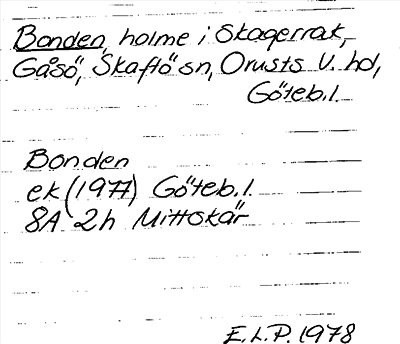 Bonden, holme i Skagerrak,
Gåsö, Skaftö sn, Orusts V. hd,
Göteb. l.
Bonden
ek (1977) Göteb. l.
8A 2h Mittskär
E.L.P. 1978